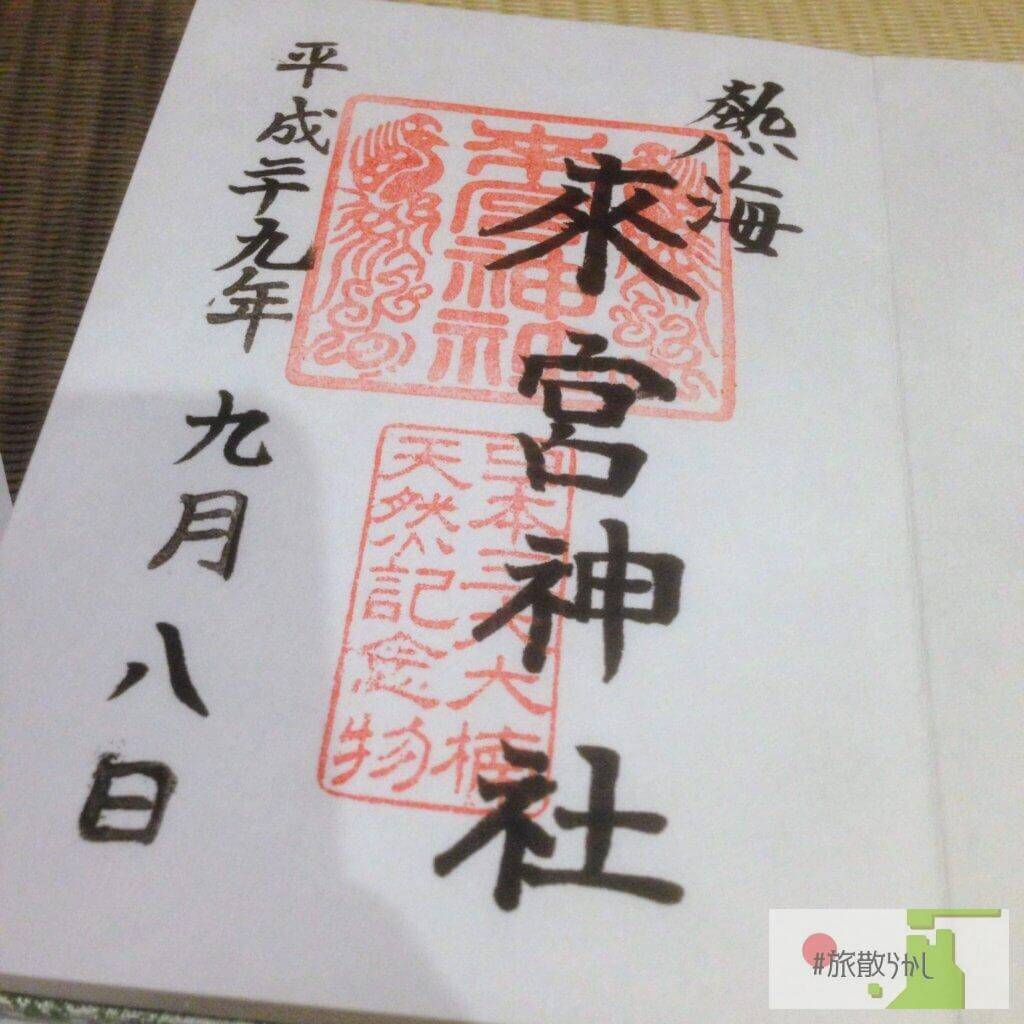 熱海
來宮神社
來宮神社
日本 大楠
天然記念物
平成二十九年 九月 八日
#旅散らかし